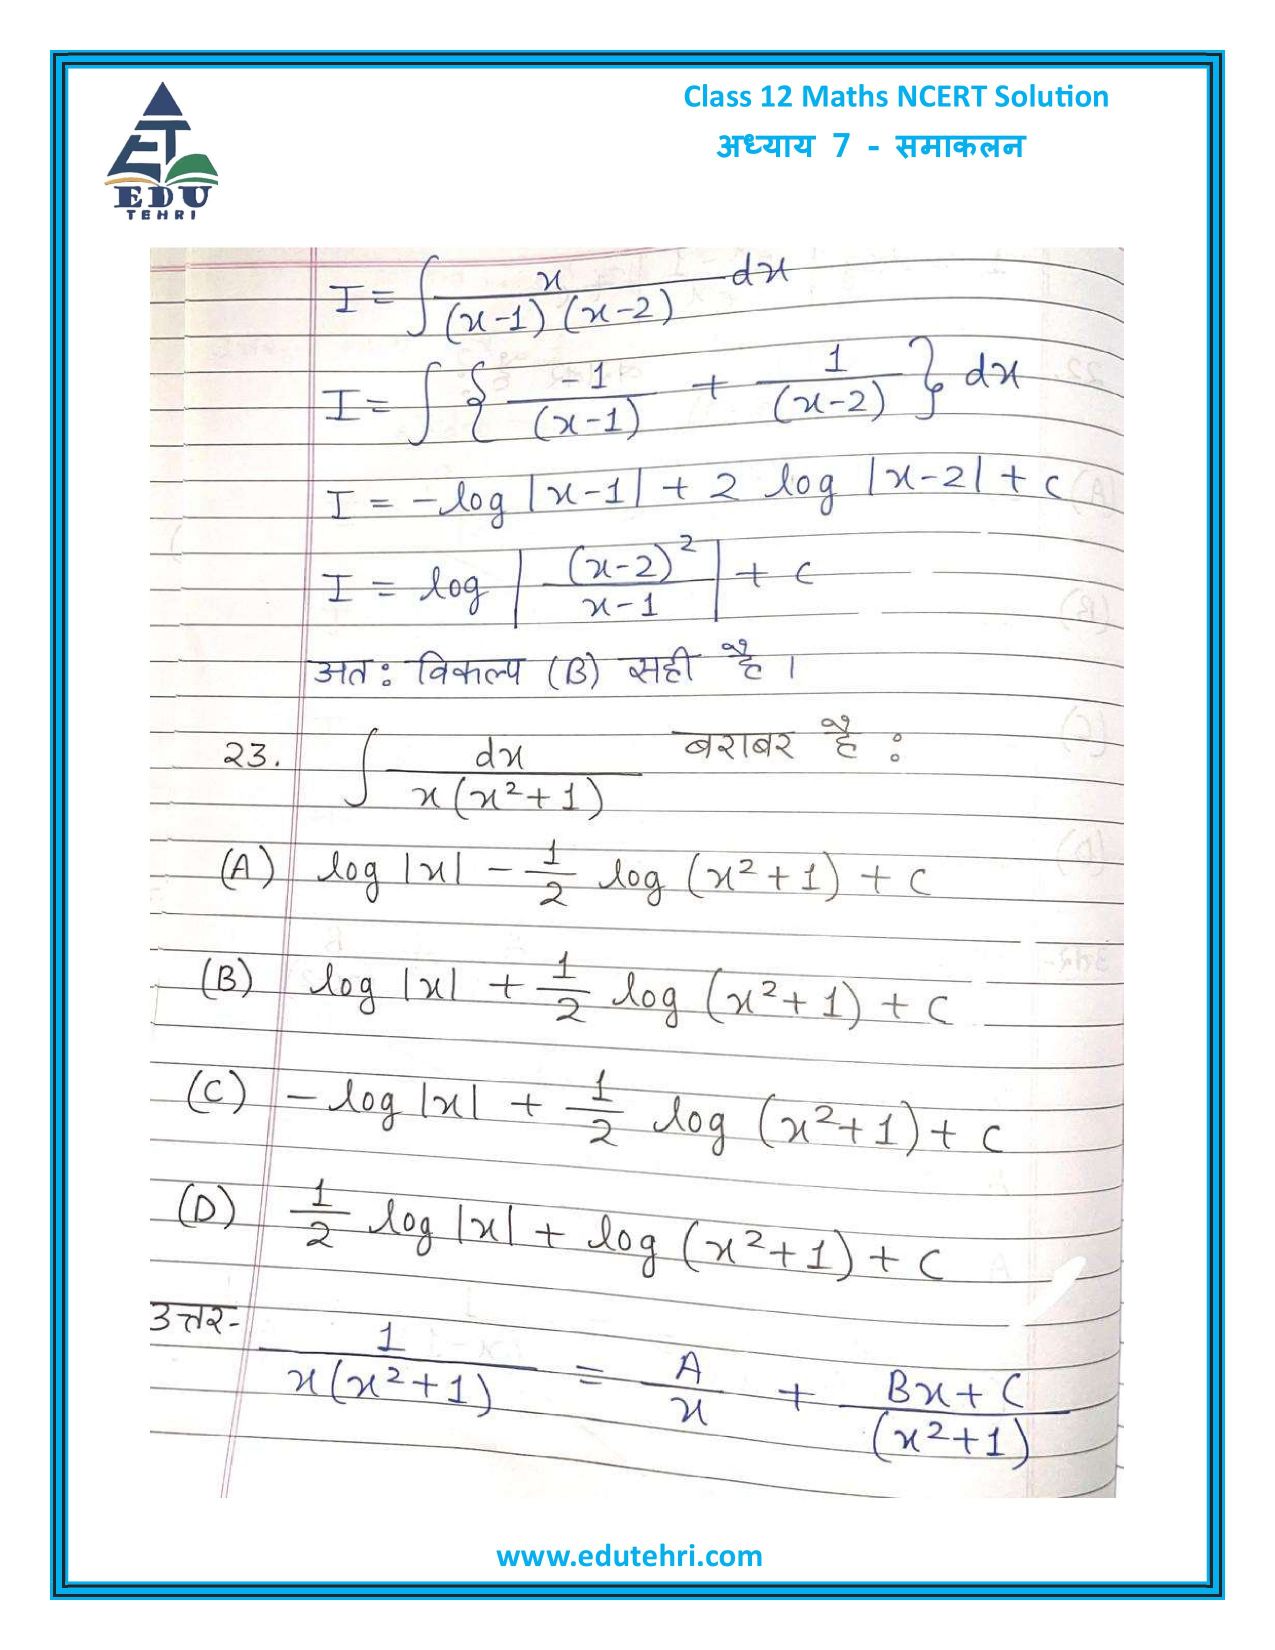 Class 12 Maths NCERT Solution
अध्याय 7 - समाकलन
EDU
TEHRI
I = ∫ x/((x-1)(x-2)) dx
I = ∫ { -1/(x-1) + 1/(x-2) } dx
I = -log |x-1| + 2 log |x-2| + c
I = log | (x-2)²/(x-1) | + c
अतः विकल्प (B) सही है।
23. ∫ dx/(x(x²+1)) बराबर है :
(A) log |x| - 1/2 log (x²+1) + C
(B) log |x| + 1/2 log (x²+1) + C
(C) - log |x| + 1/2 log (x²+1) + C
(D) 1/2 log |x| + log (x²+1) + C
उत्तर- 1/(x(x²+1)) = A/x + (Bx+C)/(x²+1)
www.edutehri.com